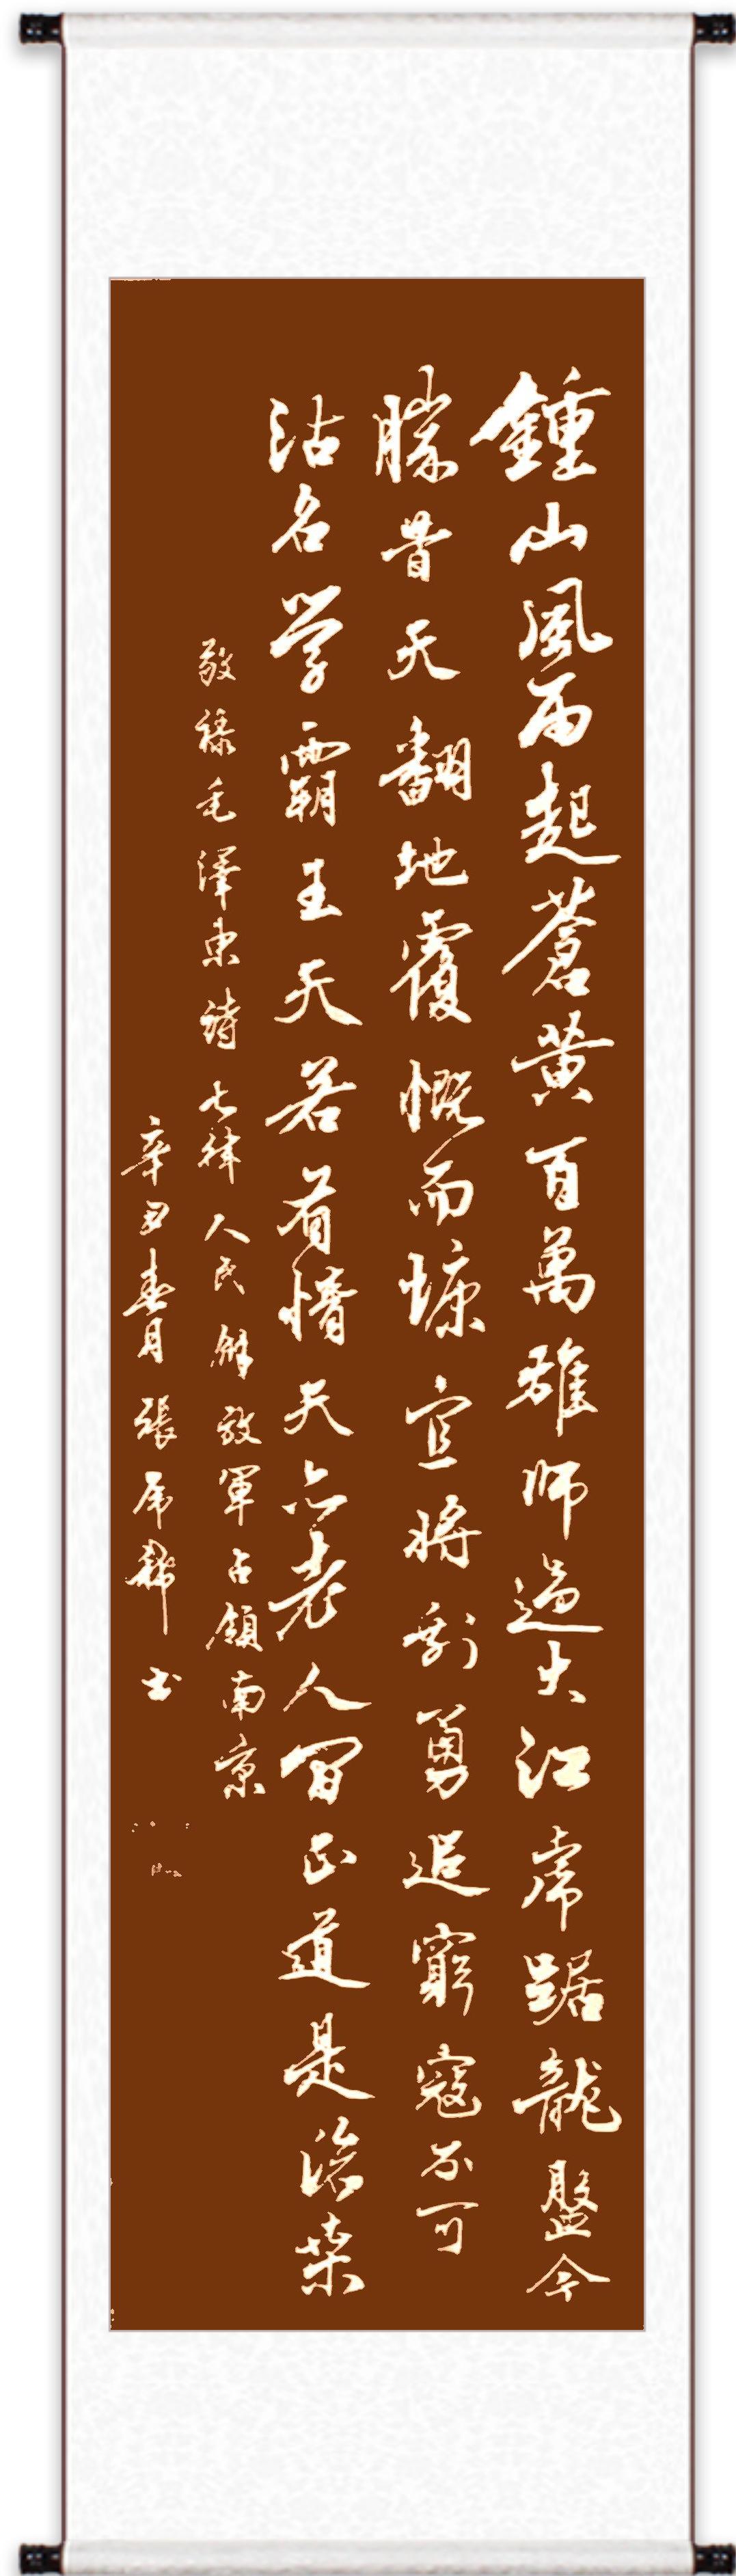 鍾山風雨起蒼黃百萬雄師過大江虎踞龍盤今
勝昔天翻地覆慨而慷宜將剩勇追窮寇不可
沽名学霸王天若有情天亦老人间正道是滄桑
敬錄毛澤東詩七律人民解放軍占領南京
辛丑春月張书